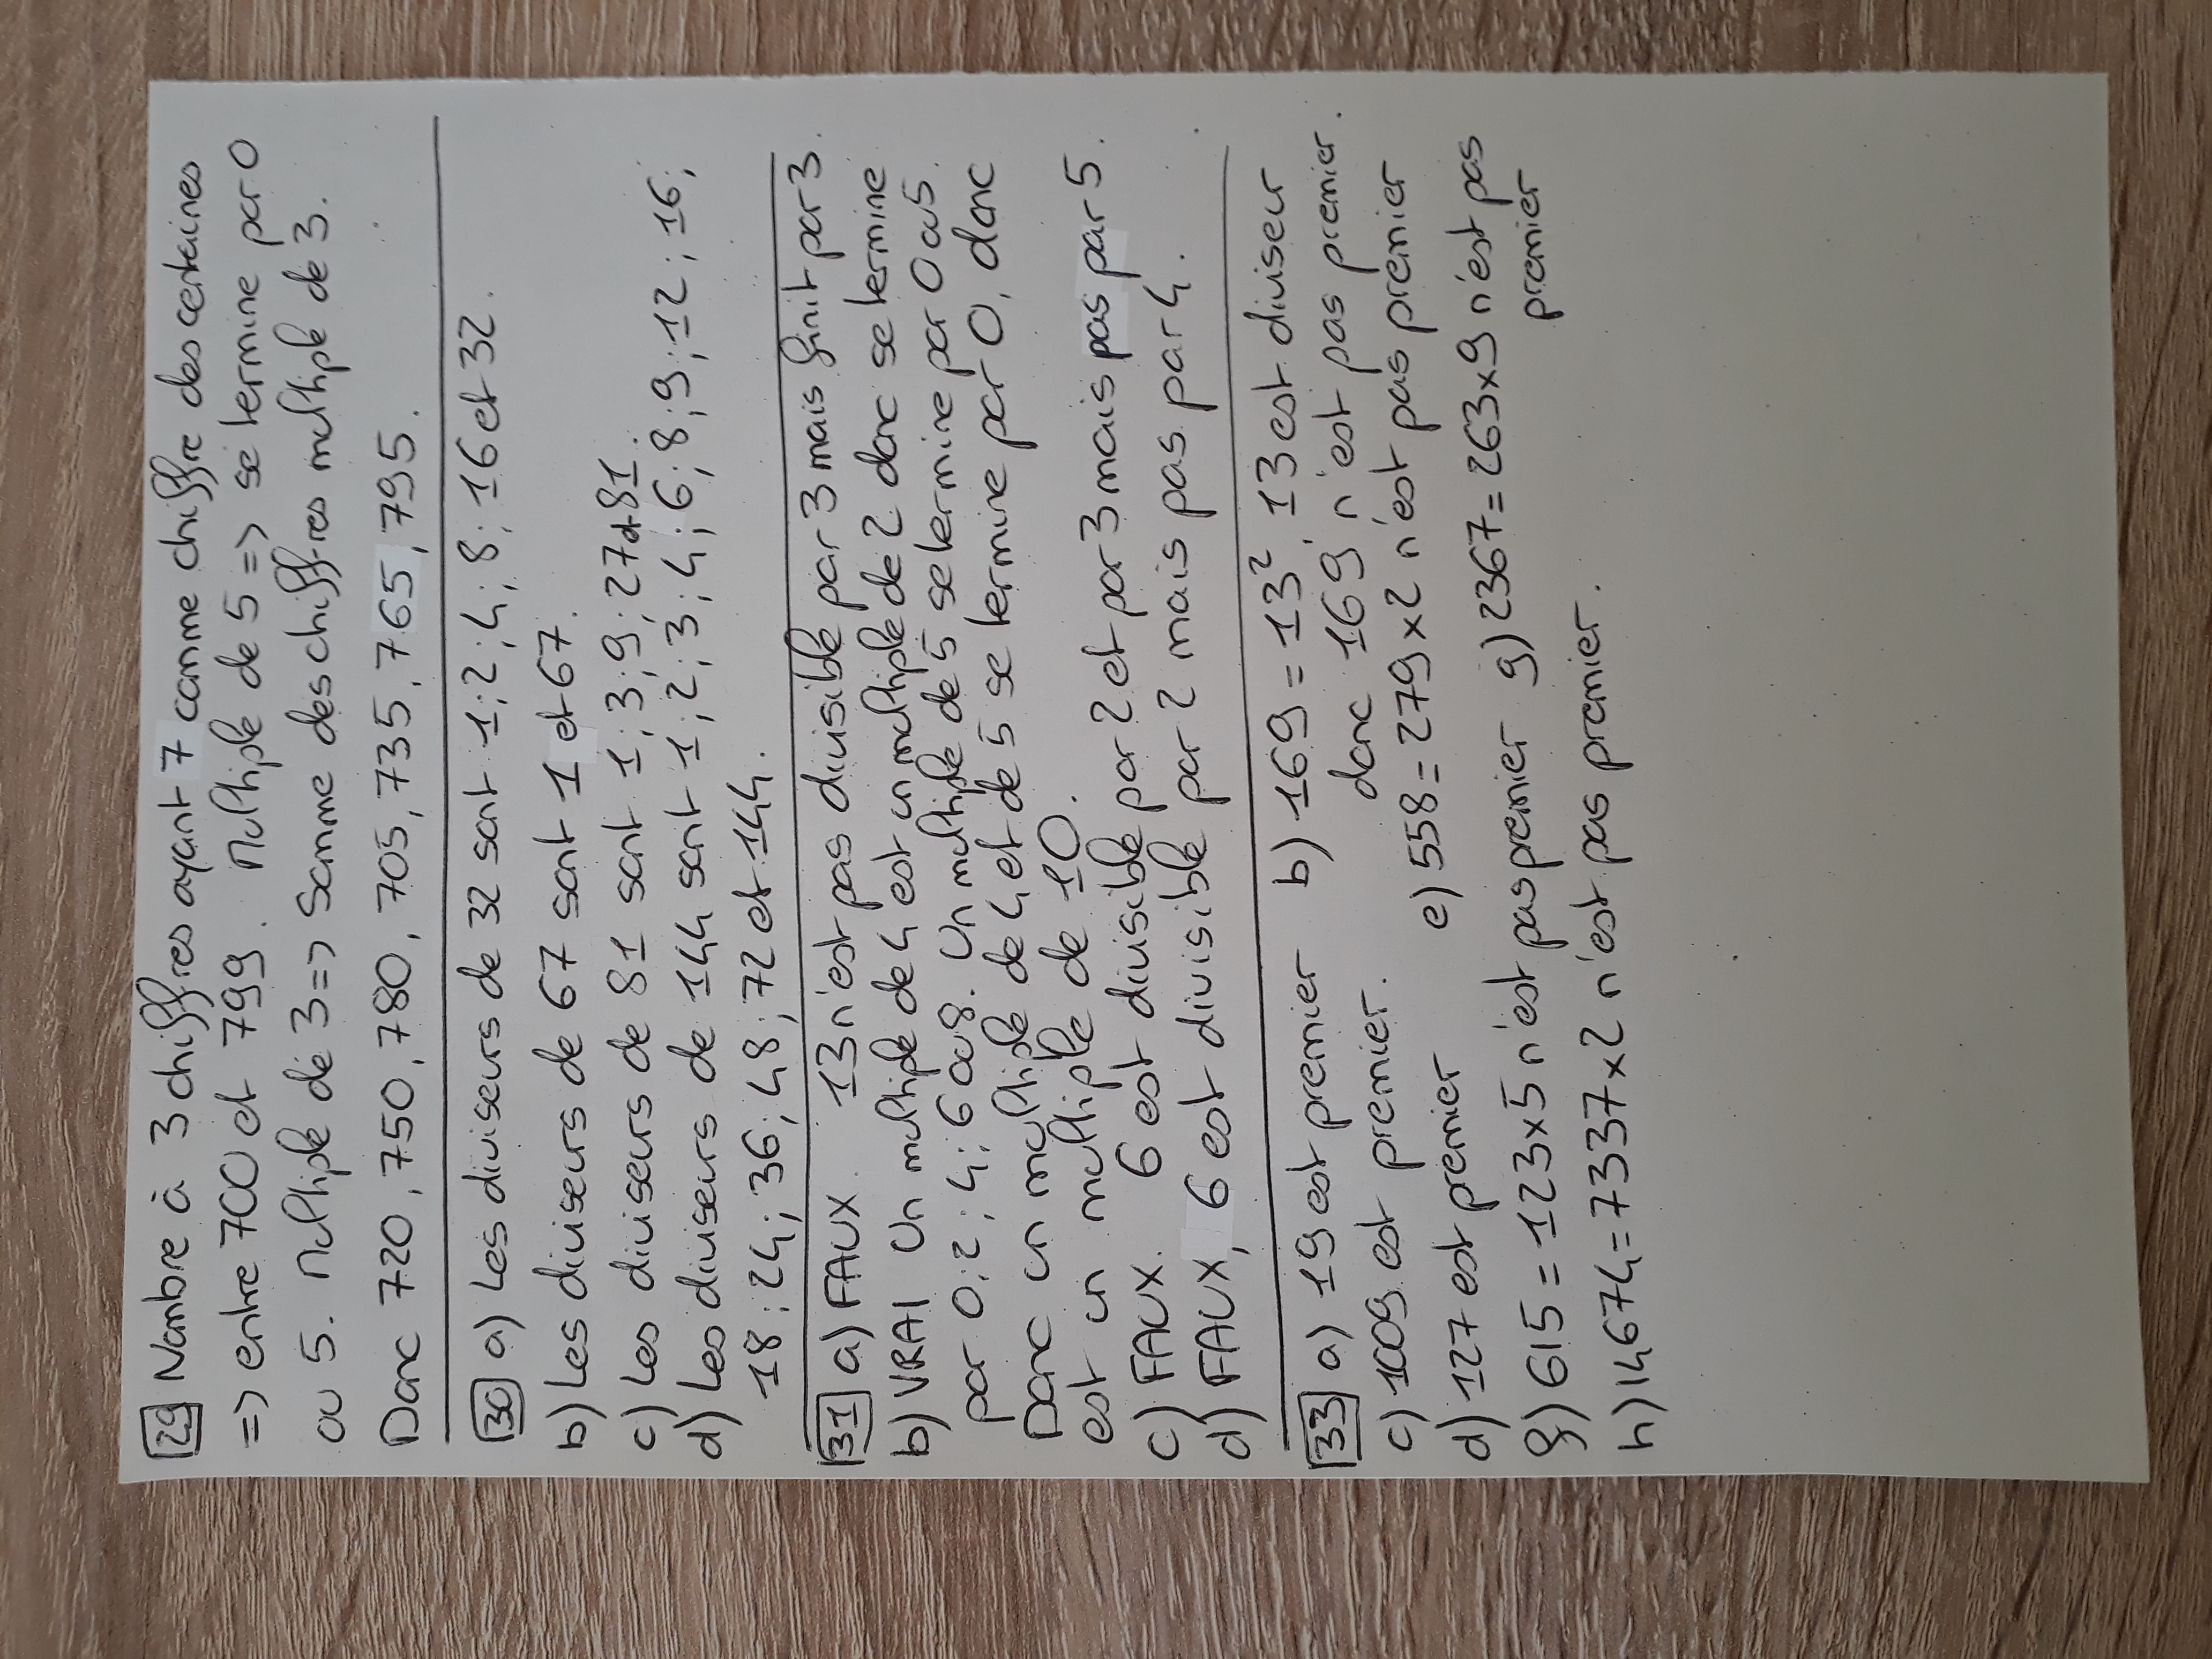 29 Nombre à 3 chiffres ayant 7 comme chiffre des centaines
=> entre 700 et 799. Multiple de 5 => se termine par 0
ou 5. Multiple de 3 => Somme des chiffres multiple de 3.
Donc 720, 750, 780, 705, 735, 765, 795.
30 a) Les diviseurs de 32 sont 1; 2; 4; 8; 16 et 32.
b) Les diviseurs de 67 sont 1 et 67.
c) Les diviseurs de 81 sont 1; 3; 9; 27 et 81.
d) Les diviseurs de 144 sont 1; 2; 3; 4; 6; 8; 9; 12; 16;
18; 24; 36; 48; 72 et 144.
31 a) FAUX. 13 n'est pas divisible par 3 mais finit par 3.
b) VRAI Un multiple de 4 est un multiple de 2 donc se termine
par 0; 2; 4; 6 ou 8. Un multiple de 5 se termine par 0 ou 5.
Donc un multiple de 4 et de 5 se termine par 0, donc
est un multiple de 10.
c) FAUX. 6 est divisible par 2 et par 3 mais pas par 5.
d) FAUX, 6 est divisible par 2 mais pas par 4.
33 a) 19 est premier b) 169 = 13², 13 est diviseur
donc 169 n'est pas premier.
c) 1009 est premier.
d) 127 est premier e) 558 = 279 x 2 n'est pas premier
f) 615 = 123 x 5 n'est pas premier g) 2367 = 263 x 9 n'est pas
premier
h) 14674 = 7337 x 2 n'est pas premier.